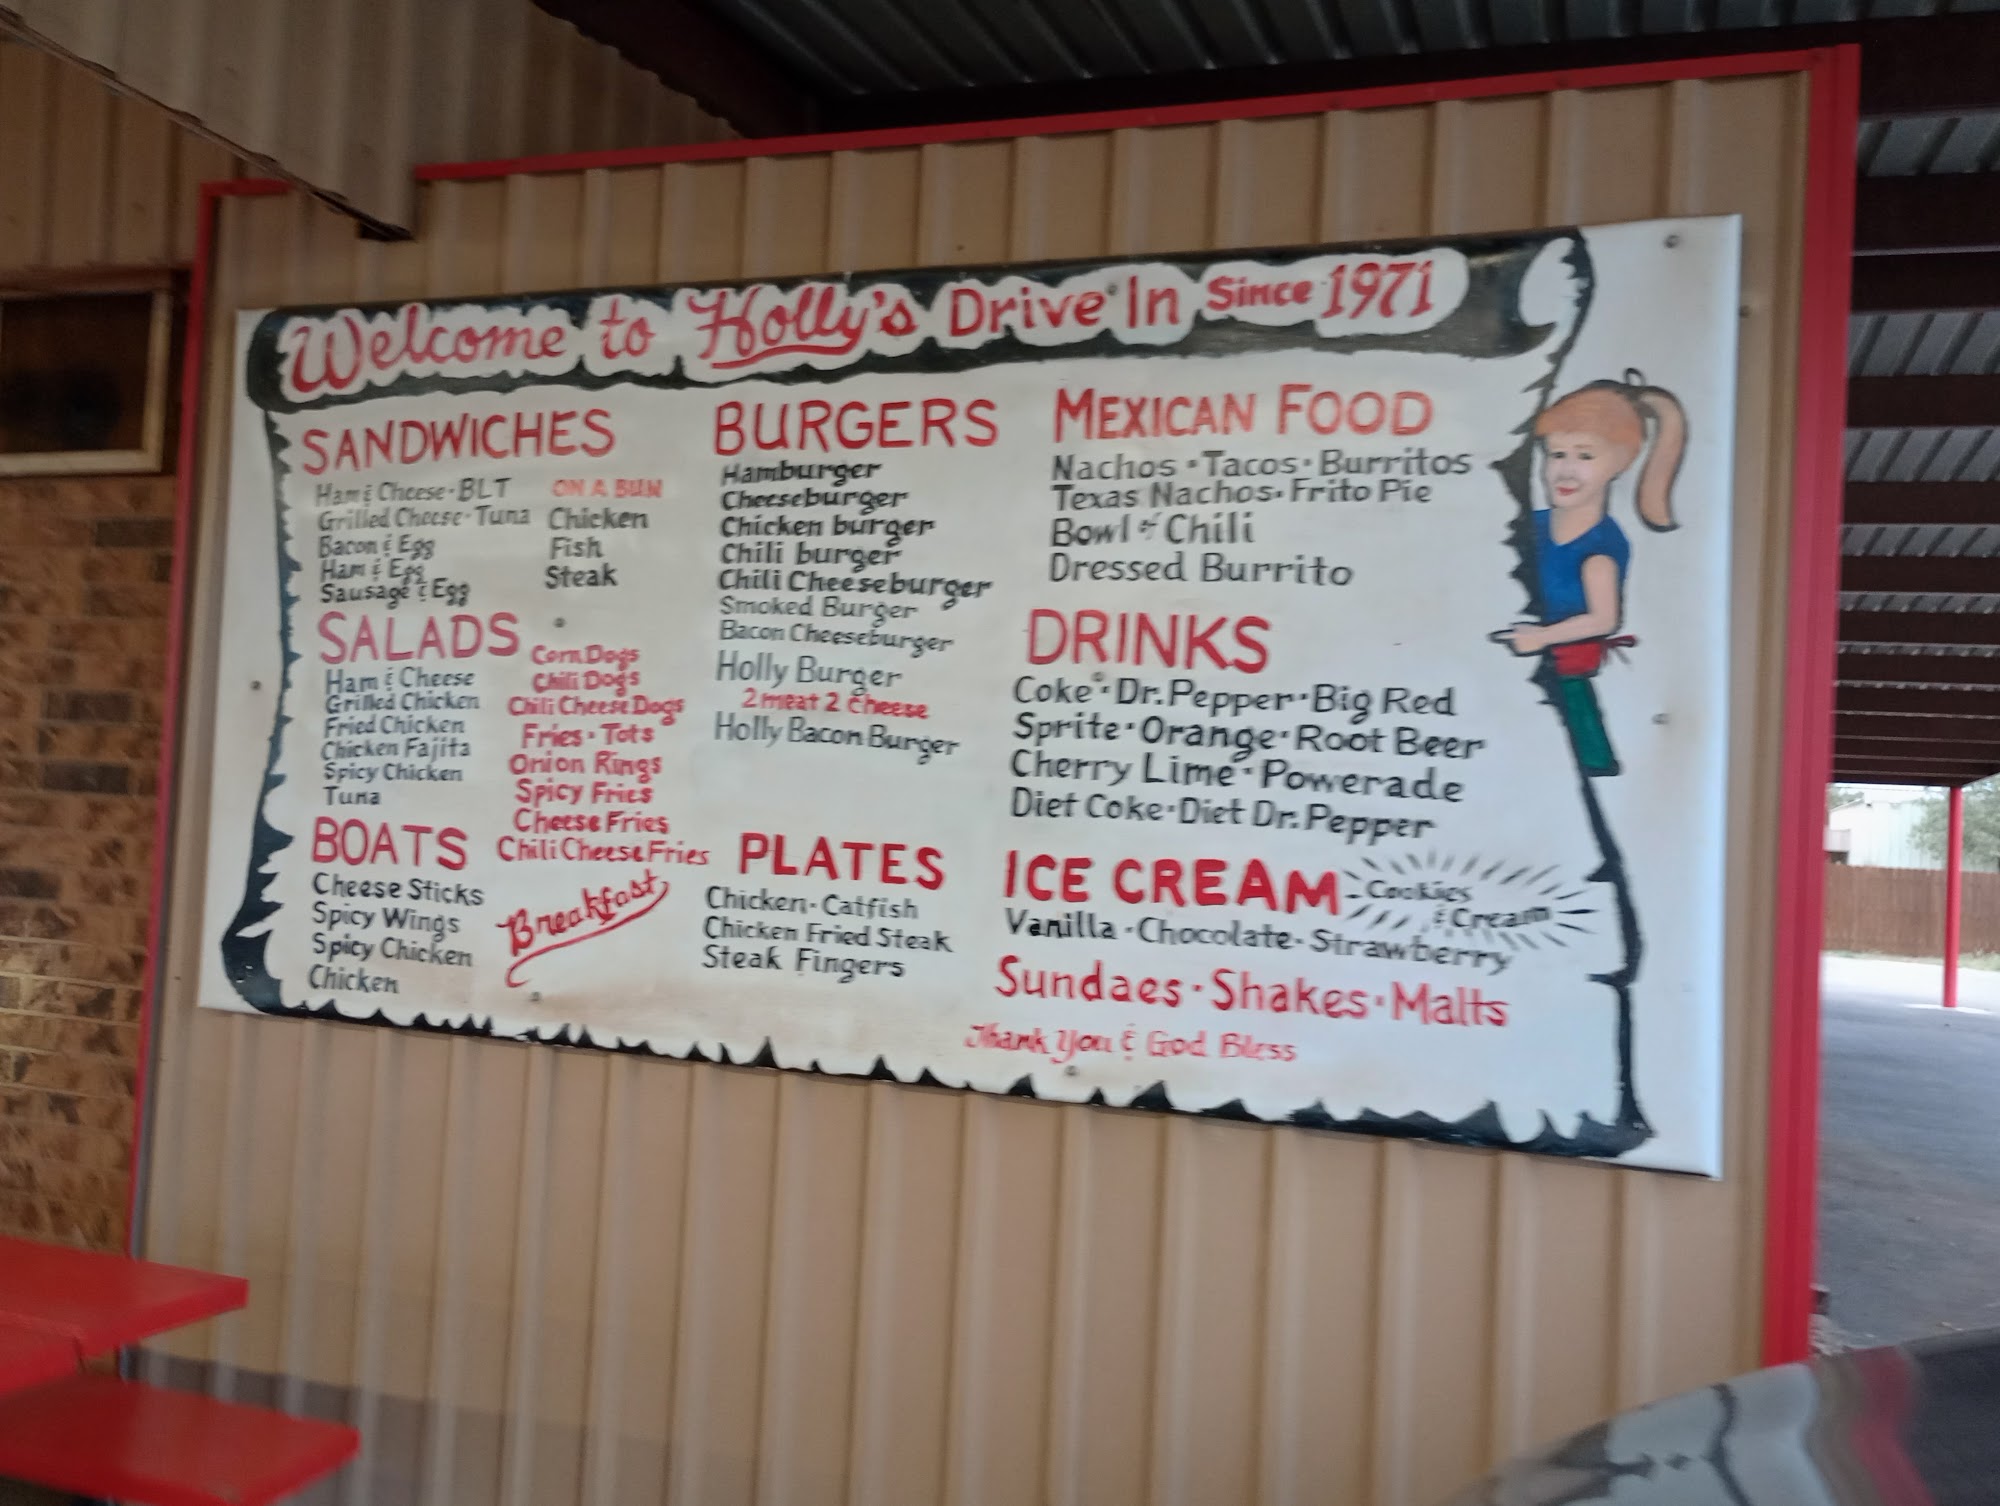 Welcome to Holly's Drive In Since 1971
SANDWICHES
Ham & Cheese · BLT
Grilled Cheese · Tuna
Bacon & Egg
Ham & Egg
Sausage & Egg
ON A BUN
Chicken
Fish
Steak
SALADS
Ham & Cheese
Grilled Chicken
Fried Chicken
Chicken Fajita
Spicy Chicken
Tuna
Corn Dogs
Chili Dogs
Chili Cheese Dogs
Fries · Tots
Onion Rings
Spicy Fries
Cheese Fries
Chili Cheese Fries
BOATS
Cheese Sticks
Spicy Wings
Spicy Chicken
Chicken
Breakfast
BURGERS
Hamburger
Cheeseburger
Chicken burger
Chili burger
Chili Cheeseburger
Smoked Burger
Bacon Cheeseburger
Holly Burger
2 meat 2 cheese
Holly Bacon Burger
PLATES
Chicken · Catfish
Chicken Fried Steak
Steak Fingers
MEXICAN FOOD
Nachos · Tacos · Burritos
Texas Nachos · Frito Pie
Bowl of Chili
Dressed Burrito
DRINKS
Coke · Dr. Pepper · Big Red
Sprite · Orange · Root Beer
Cherry Lime · Powerade
Diet Coke · Diet Dr. Pepper
ICE CREAM
Cookies
& Cream
Vanilla · Chocolate · Strawberry
Sundaes · Shakes · Malts
Thank You & God Bless